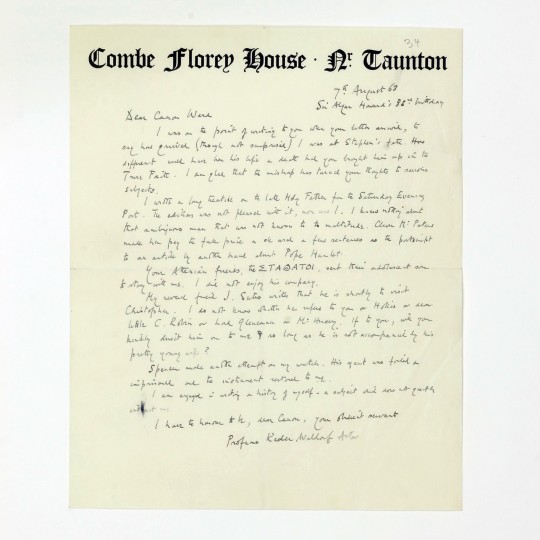 34
Combe Florey House · Nr Taunton
7th August 63
Sir Alan Herbert's birthday
Dear Canon Ward
I was on the point of writing to you when your letter arrived, to
say how grieved (though not surprised) I was at Stephen's fate. How
different would have been his life & death had you brought him up in the
True Faith. I am glad that the mishap has turned your thoughts to serious
subjects.
I wrote a long treatise on the late Holy Father for the Saturday Evening
Post. The editors was not pleased with it, nor was I. I knew nothing about
that ambiguous man that was not known to the multitude. Clever Mr Peters
made him pay the full price & he used a few sentences as the postscript
to an article by another hand about Pope Hamlet.
Your Athenian friends, the ΣΤΑΘΑΤΟΙ, sent their adolescent son
to stay with me. I did not enjoy his company.
My revered friend J. Sutro writes that he is shortly to visit
Christopher. I do not know whether he refers to you or Hollis or dear
little C. Robin or Lord Glenconner or Mr Hussey. If to you, will you
kindly direct him on to me & so long as he is not accompanied by his
pretty young wife?
made another attempt on my watch. His agent was foiled &
imprisoned and the instrument restored to me.
I am engaged in writing a history of myself - a subject
I have the honour to be, dear Canon, your obedient servant
Professor